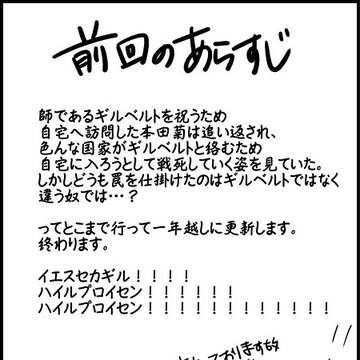 前回のあらすじ
師であるギルベルトを祝うため
自宅へ訪問した本田菊は追い返され、
色んな国家がギルベルトと絡むため
自宅に入ろうとして戦死していく姿を見ていた。
しかしどうも罠を仕掛けたのはギルベルトではなく
違う奴では…？
ってとこまで行って一年越しに更新します。
終わります。
イエスセカギル！！！！
ハイルプロイセン！！！！！！
ハイルプロイセン！！！！！！！！！！！！
ております故